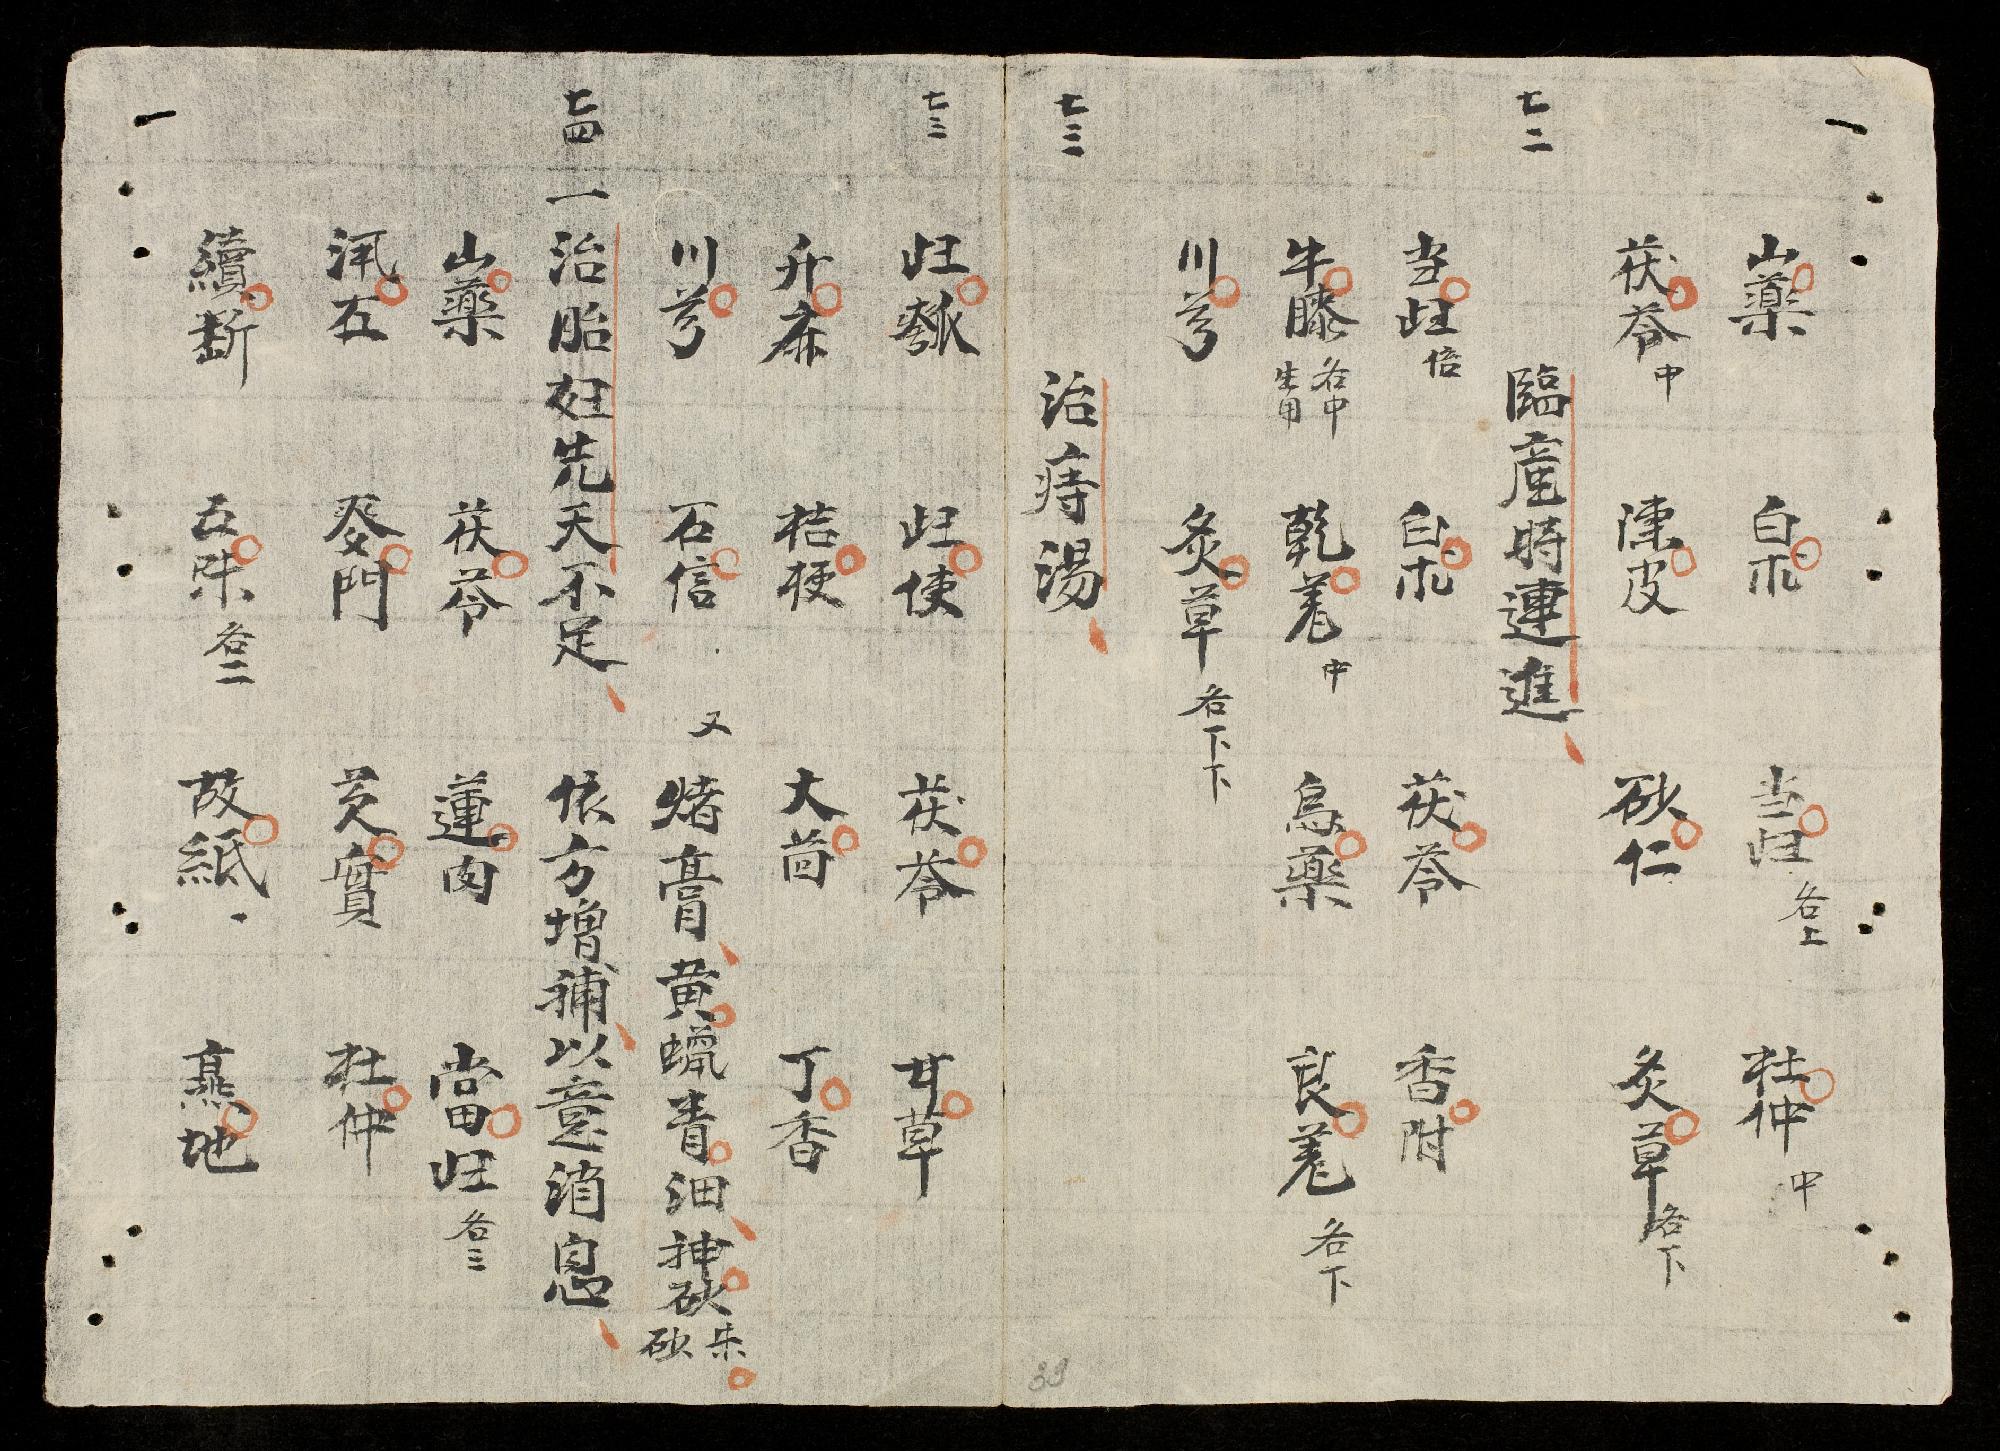 山藥 白朮 当归 各上 杜仲 中
茯苓 中 陳皮 砂仁 炙草 各下
七二 臨産時連進
当归 倍 白朮 茯苓 香附
牛膝 各中 生用 乾羗 中 烏藥 良羗 各下
川芎 炙草 各下下
七三 治痔湯
七三 归 归使 茯苓 甘草
升麻 桔梗 大茴 丁香
川芎 石信 又 猪膏 黄蠟 青油 神砂 朱砂
七四 一治胎妇先天不足 依方増補以意消息
山藥 茯苓 蓮肉 當归 各三
汛石 癹門 芡實 杜仲
續断 五味 各二 故紙 熟地
39